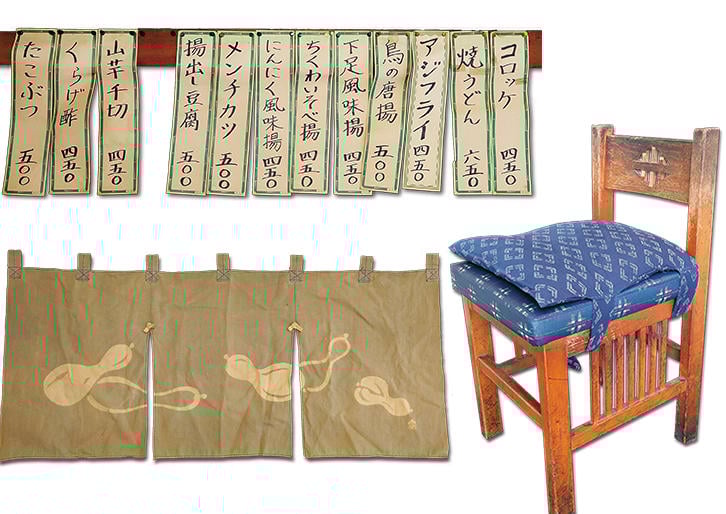 コロッケ 四五〇
焼うどん 六五〇
アジフライ 四五〇
鳥の唐揚 五〇〇
下足風味揚 四五〇
ちくわいそべ揚 四五〇
にんにく風味揚 四五〇
メンチカツ 五〇〇
揚出し豆腐 五〇〇
山芋千切 四五〇
くらげ酢 四五〇
たこぶつ 五〇〇